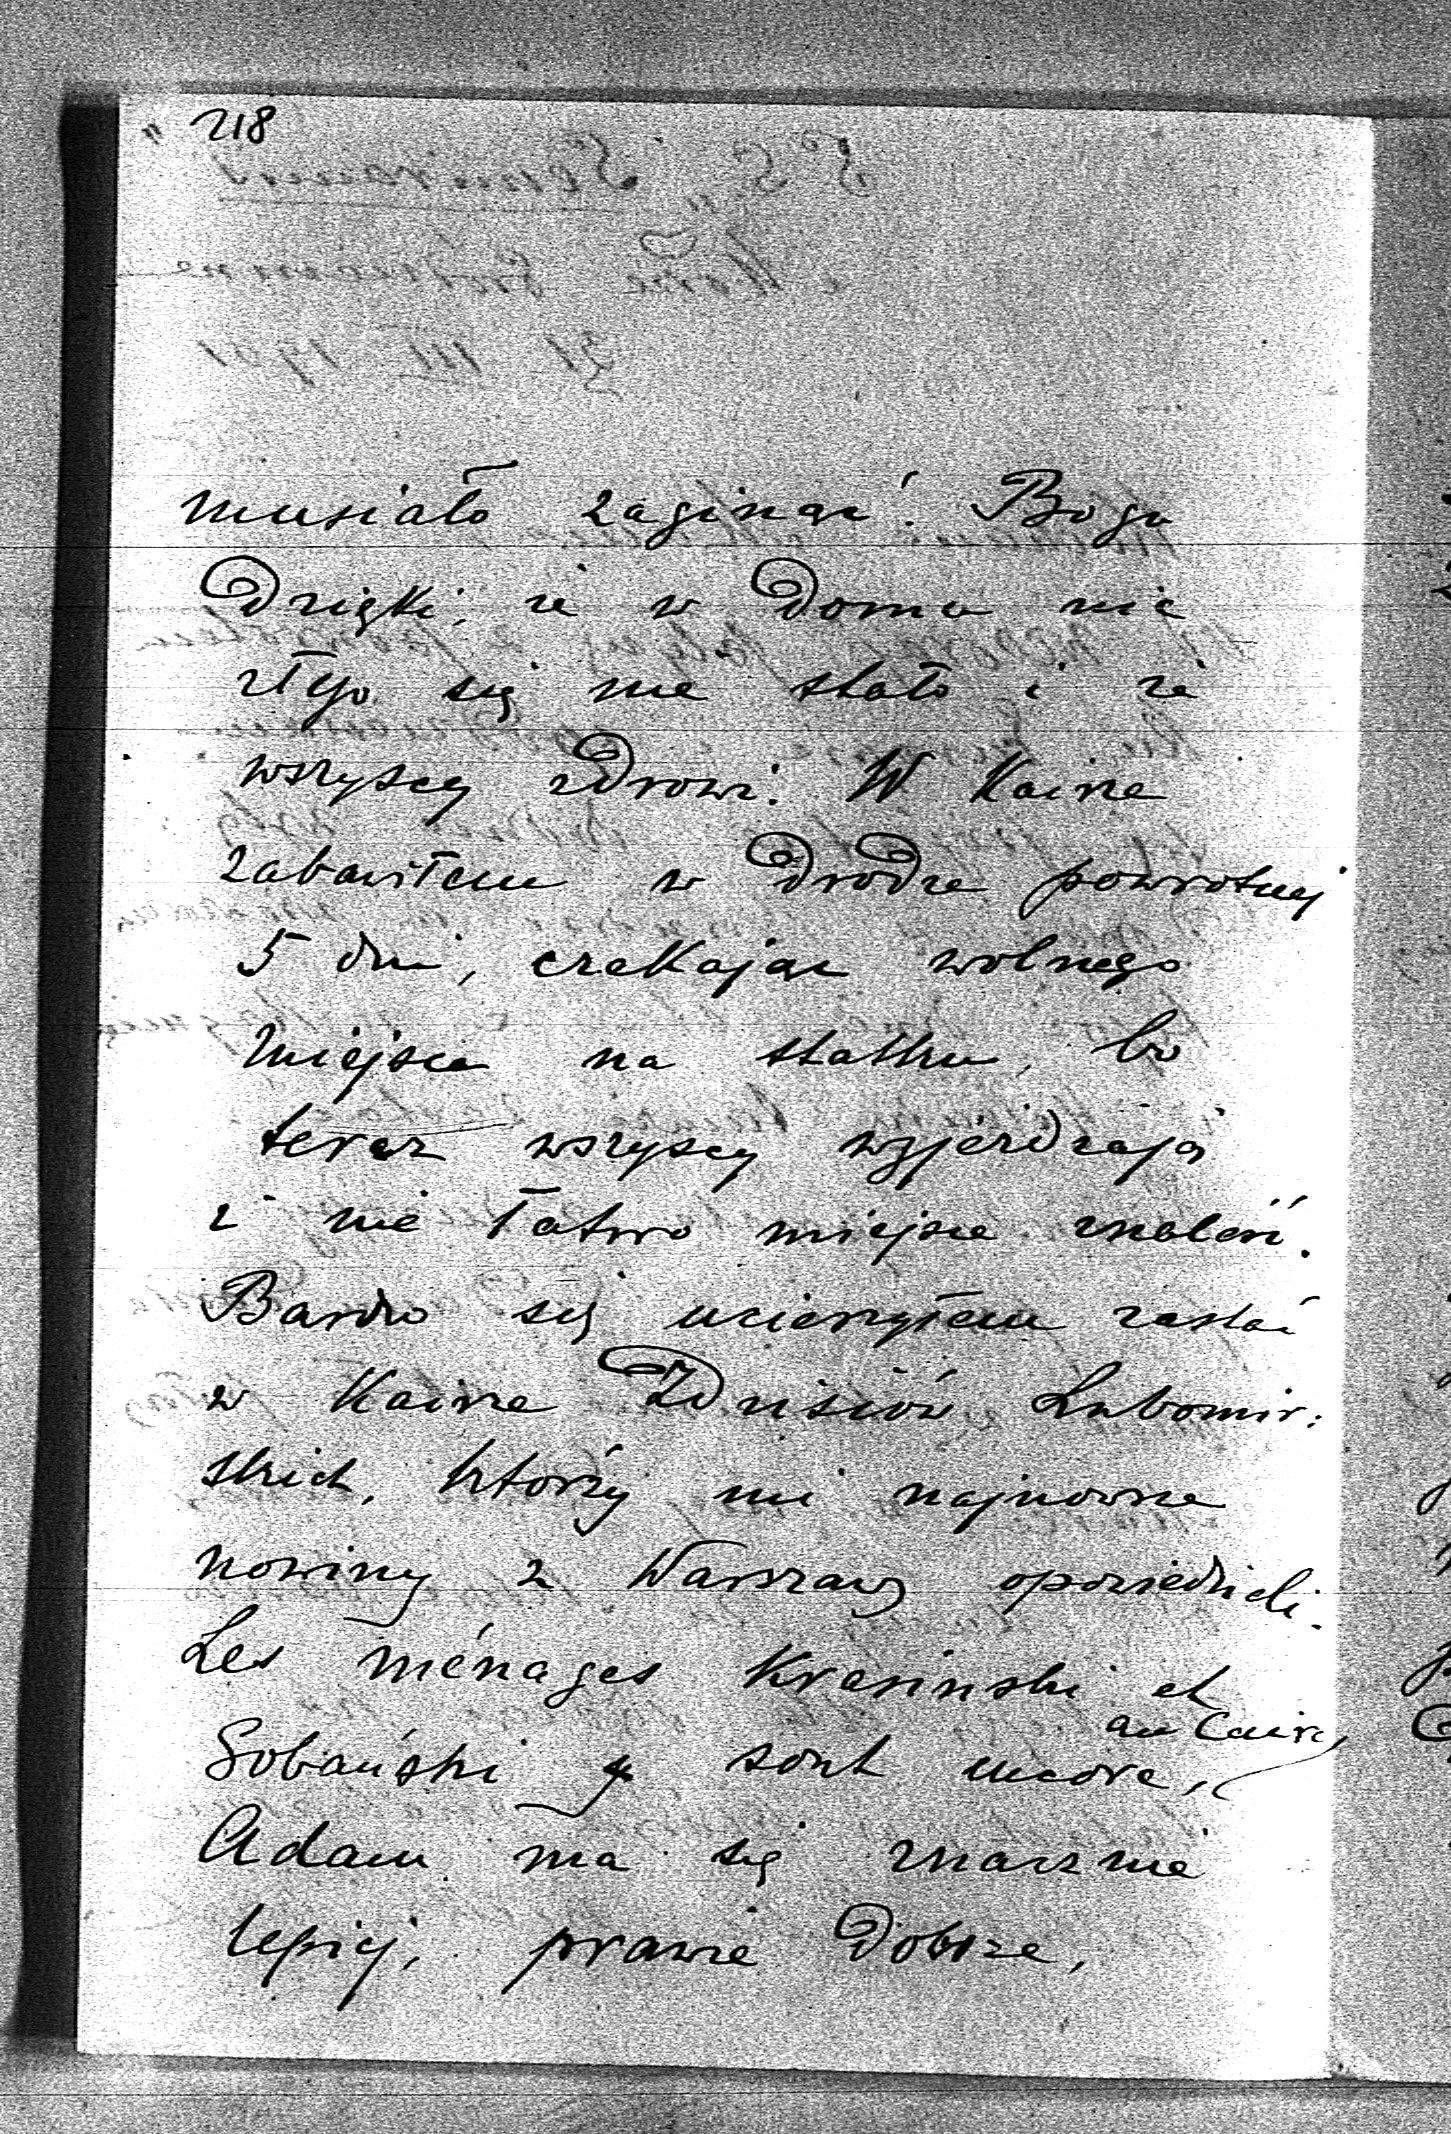 218
musiało zaginąć. Bogu
Dzięki, że w Domu nic
złego się nie stało i że
wszyscy zdrowi. W Kairze
zabawiłem w Drodze powrotnej
5 dni, czekając wolnego
miejsca na statku, bo
teraz wszyscy wyjeżdzają
i nie łatwo miejsce znaleść.
Bardzo się ucieszyłem zastać
w Kairze Zdzisiów Lubomir:
skich, którzy mi najnowsze
nowiny z Warszawy opowiedzieli.
Les ménages Krasinski et
au Caire,
Sobański y sont encore,
Adam ma się znacznie
lepiej, prawie Dobrze,